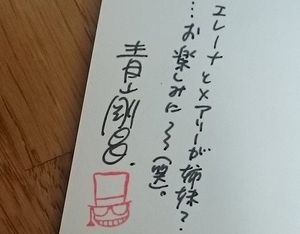 エレーナとメアリーが姉妹？
…お楽しみに〜〜(笑)。
青山剛昌